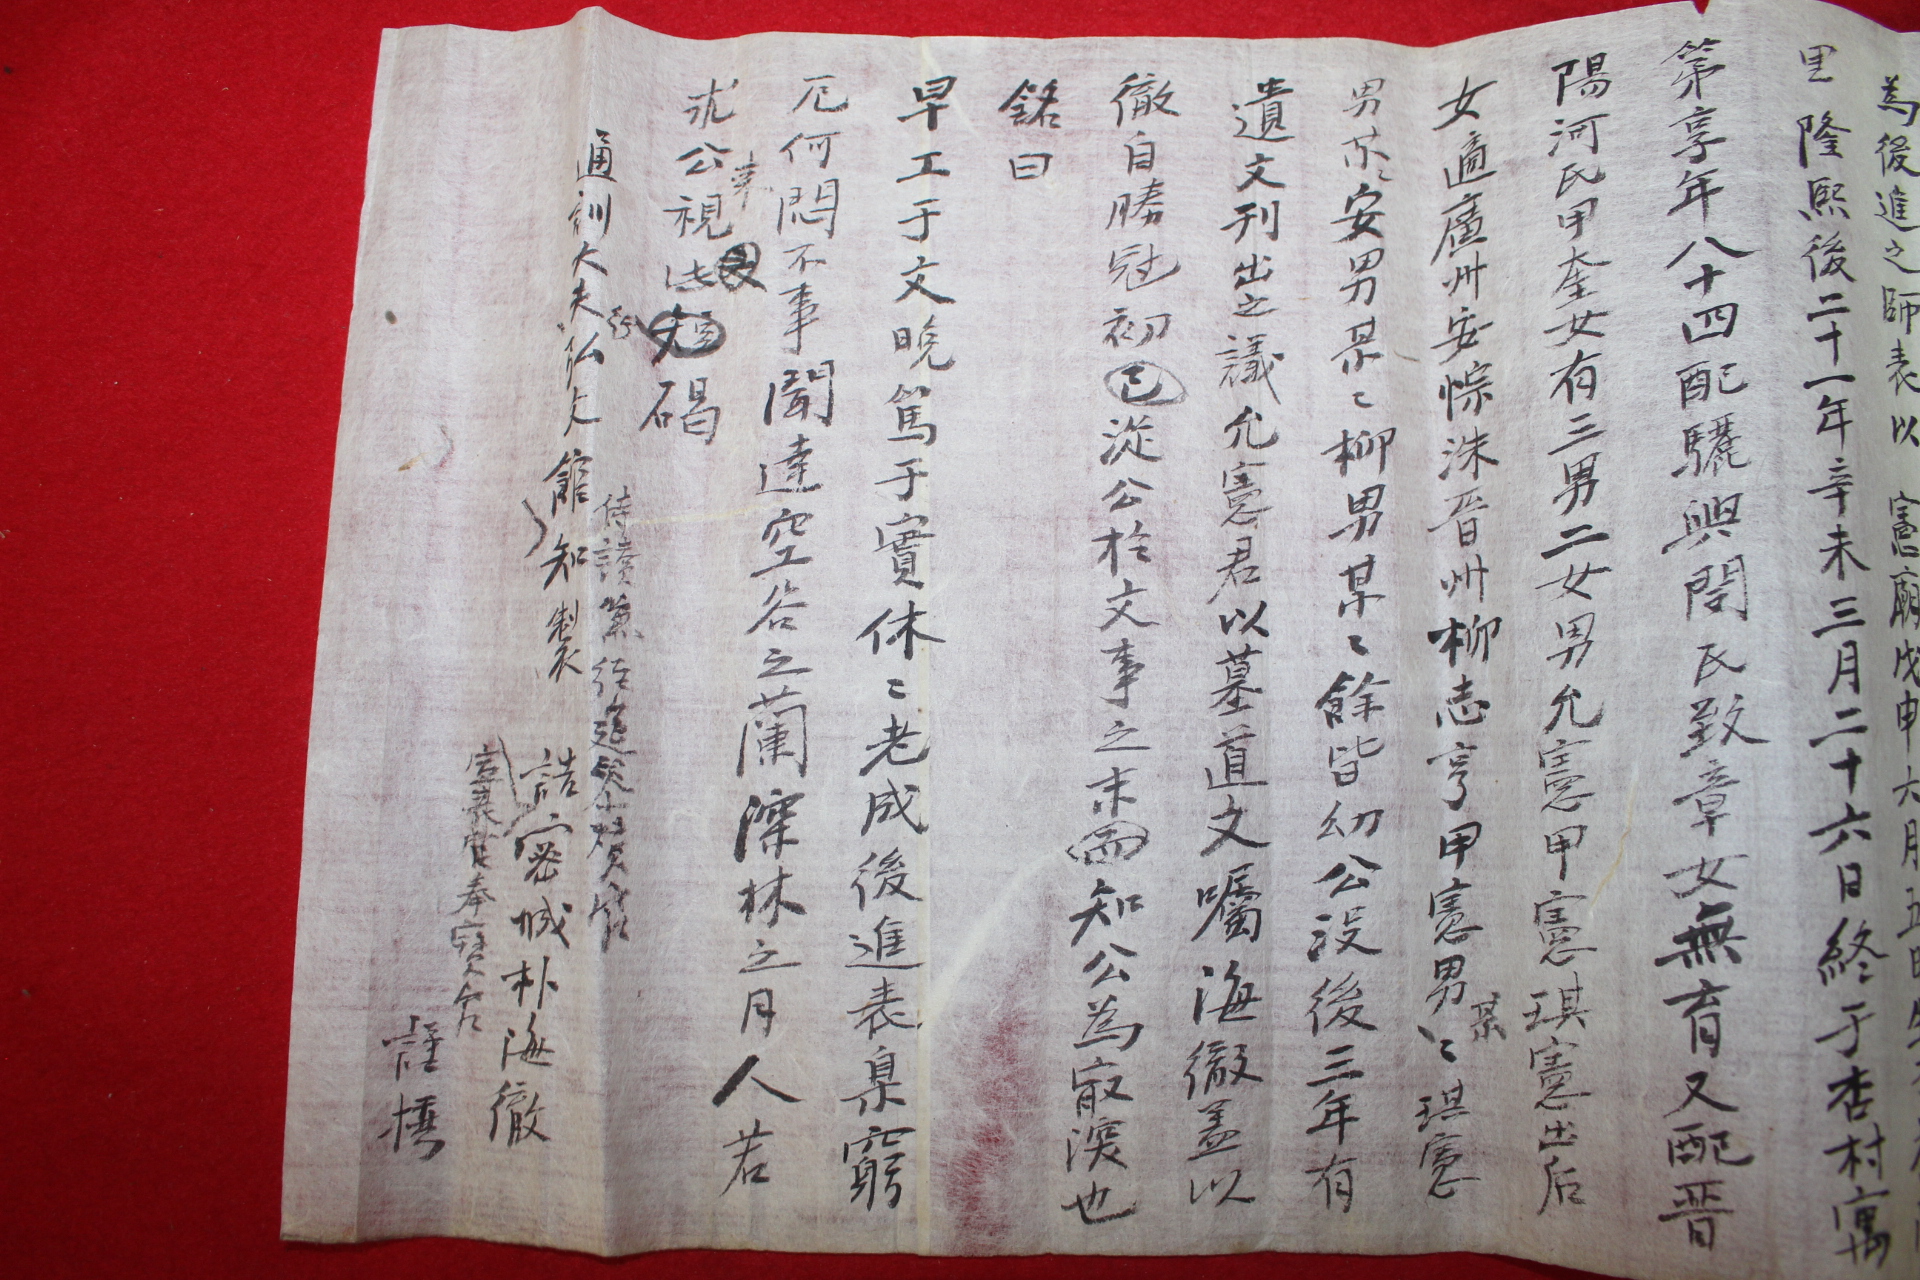 為後進之師表以 憲廟戊申六月五日
里 隆熙後二十一年辛未三月二十六日終于杏村寓
第享年八十四配驪興閔氏致章女無育又配晋
陽河氏甲奎女有三男二女男允憲甲憲琪憲出后
女適廬州安悰洙晋州柳志亨甲憲男某〻琪憲
男某〻安男某〻柳男某〻餘皆幼公没後三年有
遺文刊出之議允憲君以墓道文囑海徹盖以
徹自勝冠初已從公於文事之末而知公為最深也
銘曰
早工于文晩篤于實休〻老成後進表臬窮
厄何悶不事聞達空谷之蘭深林之月人若
求公事視此碣
通訓大夫行弘文館知製
侍讀兼經筵
誥密城朴海徹
奉
謹